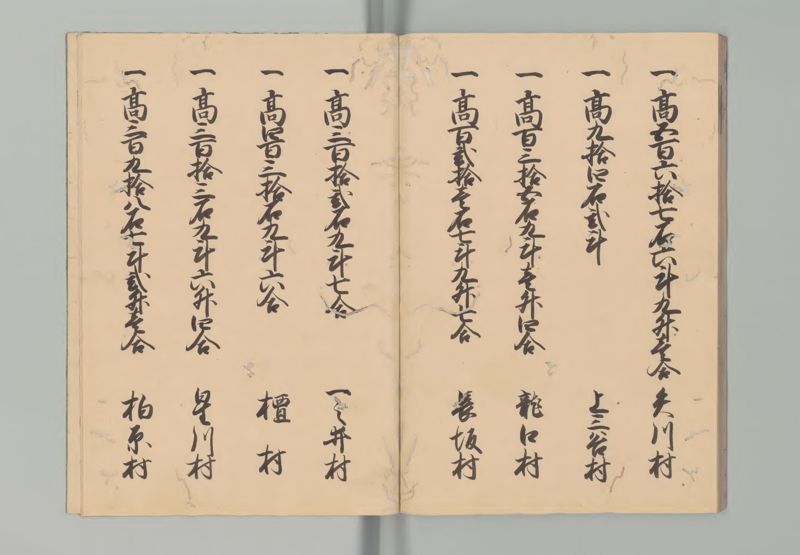 一 高五百六拾七石六斗九升壱合 矢川村
一 高九拾四石弐斗 上三谷村
一 高百三拾五石九斗壱升四合 龍口村
一 高百弐拾壱石七斗九升七合 長坂村
一 高三百拾弐石九斗七合 一之井村
一 高四百三拾石九斗六合 檀村
一 高三百拾三石九斗六升四合 星川村
一 高三百九拾八石七斗弐升壱合 柏原村